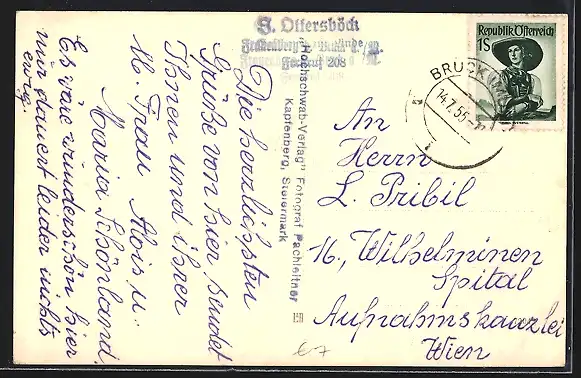 J. Ottersböck
Fernruf 208
Republik Österreich
1S
BRUCK
14.7.55
"Hochschwab-Verlag" Fotograf Pachleitner
Kapfenberg, Steiermark
Die herzlichsten
Grüße von hier sendet
Ihnen und ihrer
M. Frau Alois u.
Maria Schönland.
Es wäre wunderschön hier
nur dauert leider nichts
ewig.
An
Herrn
L. Pribil
16, Wilhelminen
Spital
Aufnahmskanzlei
Wien
€7